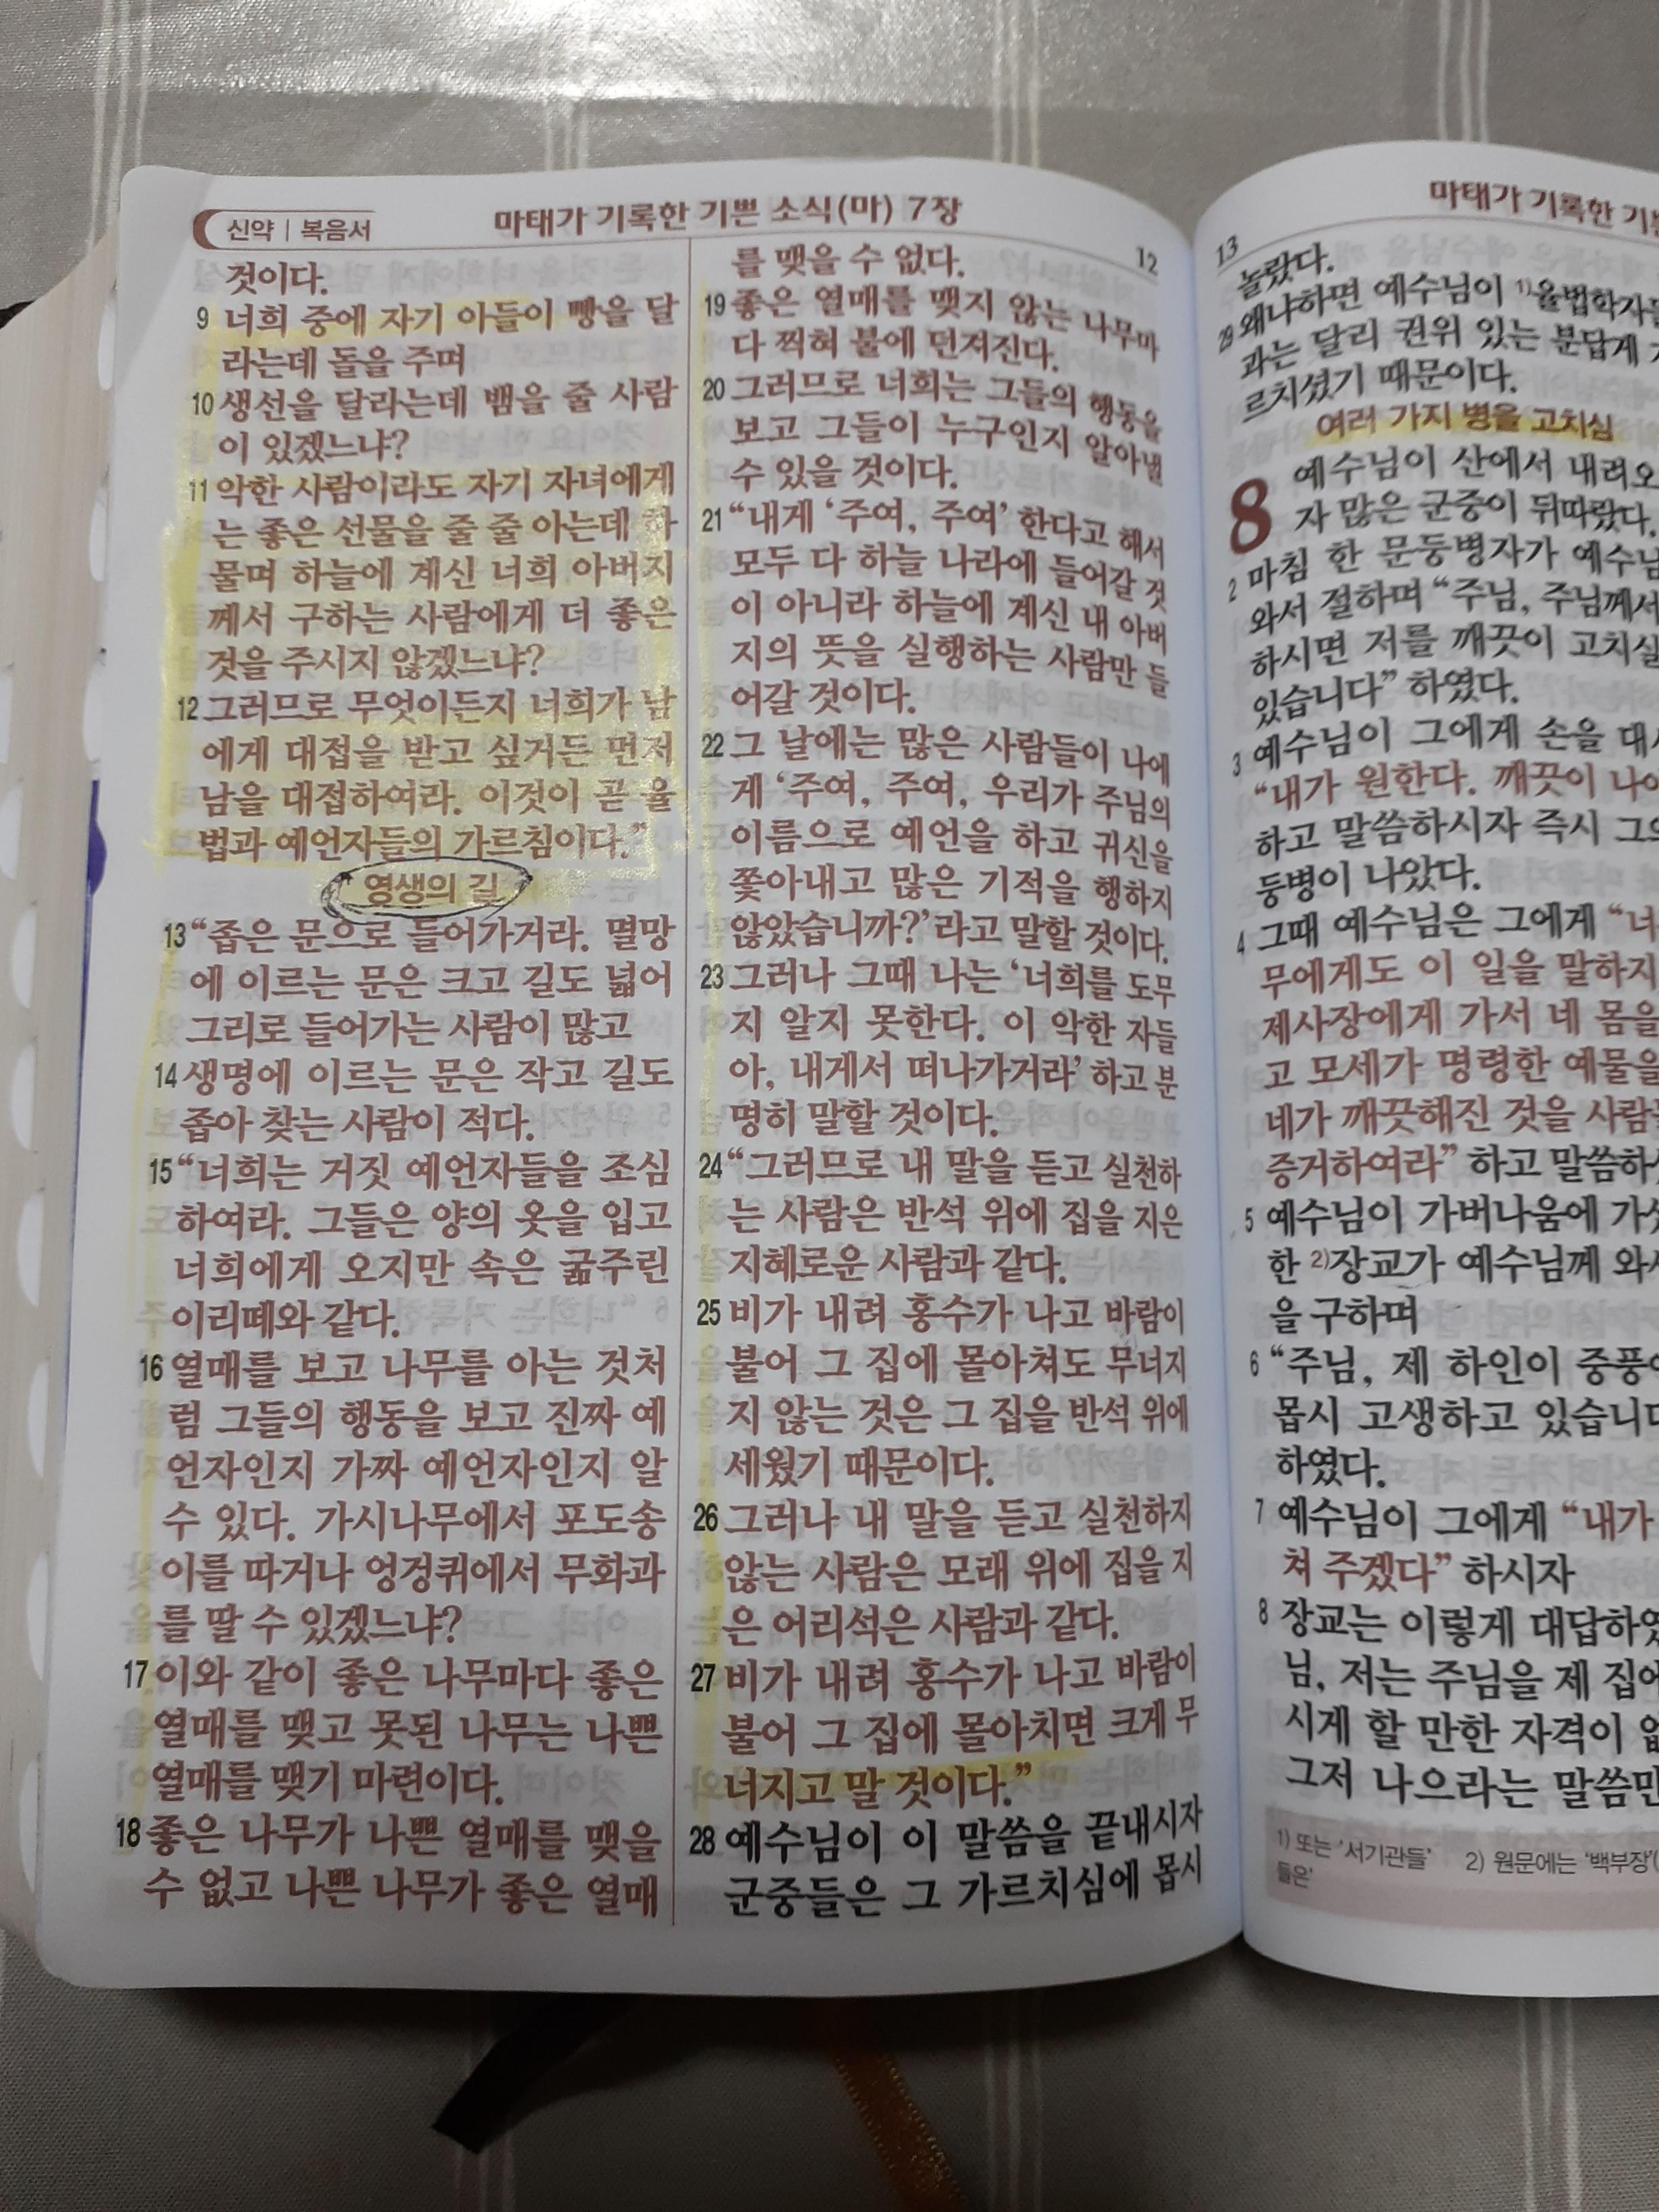 신약 | 복음서
마태가 기록한 기쁜 소식(마) 7장
12
것이다.
9 너희 중에 자기 아들이 빵을 달
라는데 돌을 주며
10 생선을 달라는데 뱀을 줄 사람
이 있겠느냐?
11 악한 사람이라도 자기 자녀에게
는 좋은 선물을 줄 줄 아는데 하
물며 하늘에 계신 너희 아버지
께서 구하는 사람에게 더 좋은
것을 주시지 않겠느냐?
12 그러므로 무엇이든지 너희가 남
에게 대접을 받고 싶거든 먼저
남을 대접하여라. 이것이 곧 율
법과 예언자들의 가르침이다.”
영생의 길
13 “좁은 문으로 들어가거라. 멸망
에 이르는 문은 크고 길도 넓어
그리로 들어가는 사람이 많고
14 생명에 이르는 문은 작고 길도
좁아 찾는 사람이 적다.
15 “너희는 거짓 예언자들을 조심
하여라. 그들은 양의 옷을 입고
너희에게 오지만 속은 굶주린
이리떼와 같다.
16 열매를 보고 나무를 아는 것처
럼 그들의 행동을 보고 진짜 예
언자인지 가짜 예언자인지 알
수 있다. 가시나무에서 포도송
이를 따거나 엉겅퀴에서 무화과
를 딸 수 있겠느냐?
17 이와 같이 좋은 나무마다 좋은
열매를 맺고 못된 나무는 나쁜
열매를 맺기 마련이다.
18 좋은 나무가 나쁜 열매를 맺을
수 없고 나쁜 나무가 좋은 열매
를 맺을 수 없다.
19 좋은 열매를 맺지 않는 나무마
다 찍혀 불에 던져진다.
20 그러므로 너희는 그들의 행동을
보고 그들이 누구인지 알아낼
수 있을 것이다.
21 “내게 ‘주여, 주여’ 한다고 해서
모두 다 하늘 나라에 들어갈 것
이 아니라 하늘에 계신 내 아버
지의 뜻을 실행하는 사람만 들
어갈 것이다.
22 그 날에는 많은 사람들이 나에
게 ‘주여, 주여, 우리가 주님의
이름으로 예언을 하고 귀신을
쫓아내고 많은 기적을 행하지
않았습니까?’라고 말할 것이다.
23 그러나 그때 나는 ‘너희를 도무
지 알지 못한다. 이 악한 자들
아, 내게서 떠나가거라’ 하고 분
명히 말할 것이다.
24 “그러므로 내 말을 듣고 실천하
는 사람은 반석 위에 집을 지은
지혜로운 사람과 같다.
25 비가 내려 홍수가 나고 바람이
불어 그 집에 몰아쳐도 무너지
지 않는 것은 그 집을 반석 위에
세웠기 때문이다.
26 그러나 내 말을 듣고 실천하지
않는 사람은 모래 위에 집을 지
은 어리석은 사람과 같다.
27 비가 내려 홍수가 나고 바람이
불어 그 집에 몰아치면 크게 무
너지고 말 것이다.”
28 예수님이 이 말씀을 끝내시자
군중들은 그 가르치심에 몹시
13
마태가 기록한
놀랐다.
29 왜냐하면 예수님이 1)율법학자
과는 달리 권위 있는 분답게
르치셨기 때문이다.
여러 가지 병을 고치심
8 예수님이 산에서 내려오
자 많은 군중이 뒤따랐다.
2 마침 한 문둥병자가
와서 절하며 “주님, 주님께서
하시면 저를 깨끗이 고치실
있습니다” 하였다.
3 예수님이 그에게 손을
“내가 원한다. 깨끗이
하고 말씀하시자 즉시
등병이 나았다.
4 그때 예수님은 그에게
무에게도 이 일을 말하지
제사장에게 가서 네 몸을
고 모세가 명령한 예물을
네가 깨끗해진 것을
증거하여라” 하고
5 예수님이 가버나움에
한 2)장교가 예수님께
을 구하며
6 “주님, 제 하인이
몹시 고생하고
하였다.
7 예수님이 그에게 “내가
쳐 주겠다” 하시자
8 장교는 이렇게
님, 저는 주님을 제
시게 할 만한 자격이
그저 나으라는
1) 또는 ‘서기관들’ 2) 원문에는 ‘백부장’(
들은’